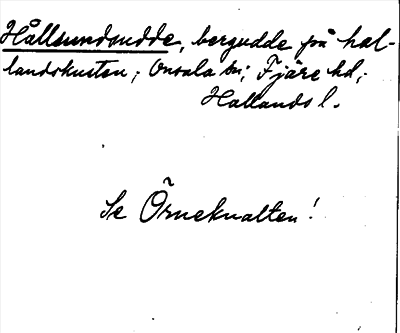 Hållsundsudde, bergudde på hal-
landskusten; Onsala sn; Fjäre hd,
Hallands l.
Se Örneknalten!